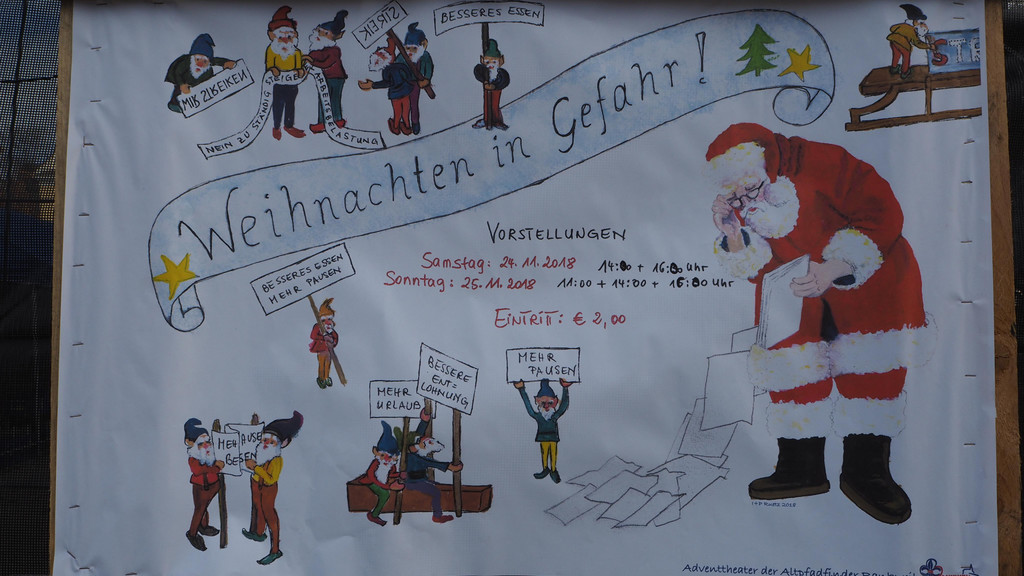 WIR STREIKEN
NEIN ZU STÄNDIG STEIGENDER
ARBEITSBELASTUNG
STREIK
BESSERES ESSEN
STR
Weihnachten in Gefahr!
VORSTELLUNGEN
Samstag: 24.11.2018 14:00 + 16:00 Uhr
Sonntag: 25.11.2018 11:00 + 14:00 + 16:00 Uhr
EINTRITT: € 2,00
BESSERES ESSEN
MEHR PAUSEN
MEHR
URLAUB
BESSERE
ENT=
LOHNUNG
MEHR
PAUSEN
MEH
BE
AUSE
SEN
2018
Adventtheater der Altpfadfinder